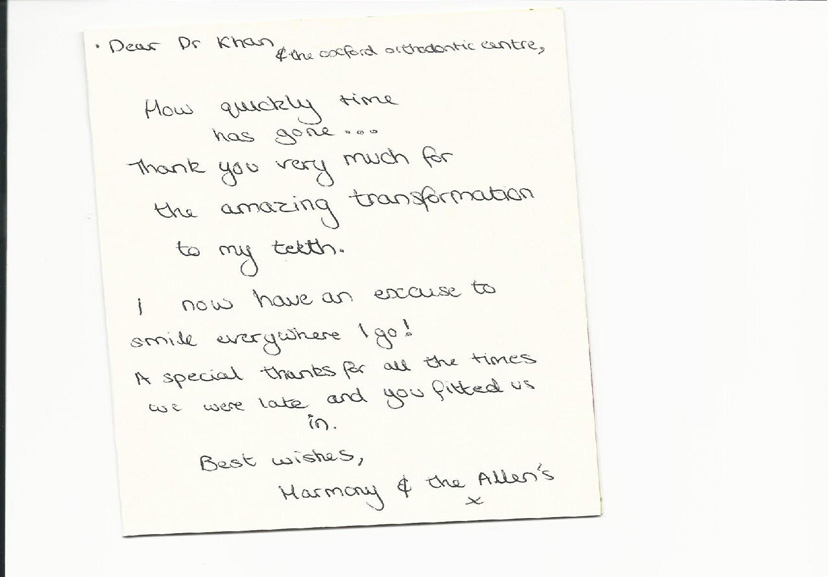 Dear Dr Khan
& the oxford orthodontic centre,
How quickly time
has gone...
Thank you very much for
the amazing transformation
to my teeth.
I now have an excuse to
smile everywhere I go!
A special thanks for all the times
we were late and you fitted us
in.
Best wishes,
Harmony & the Allen's
x